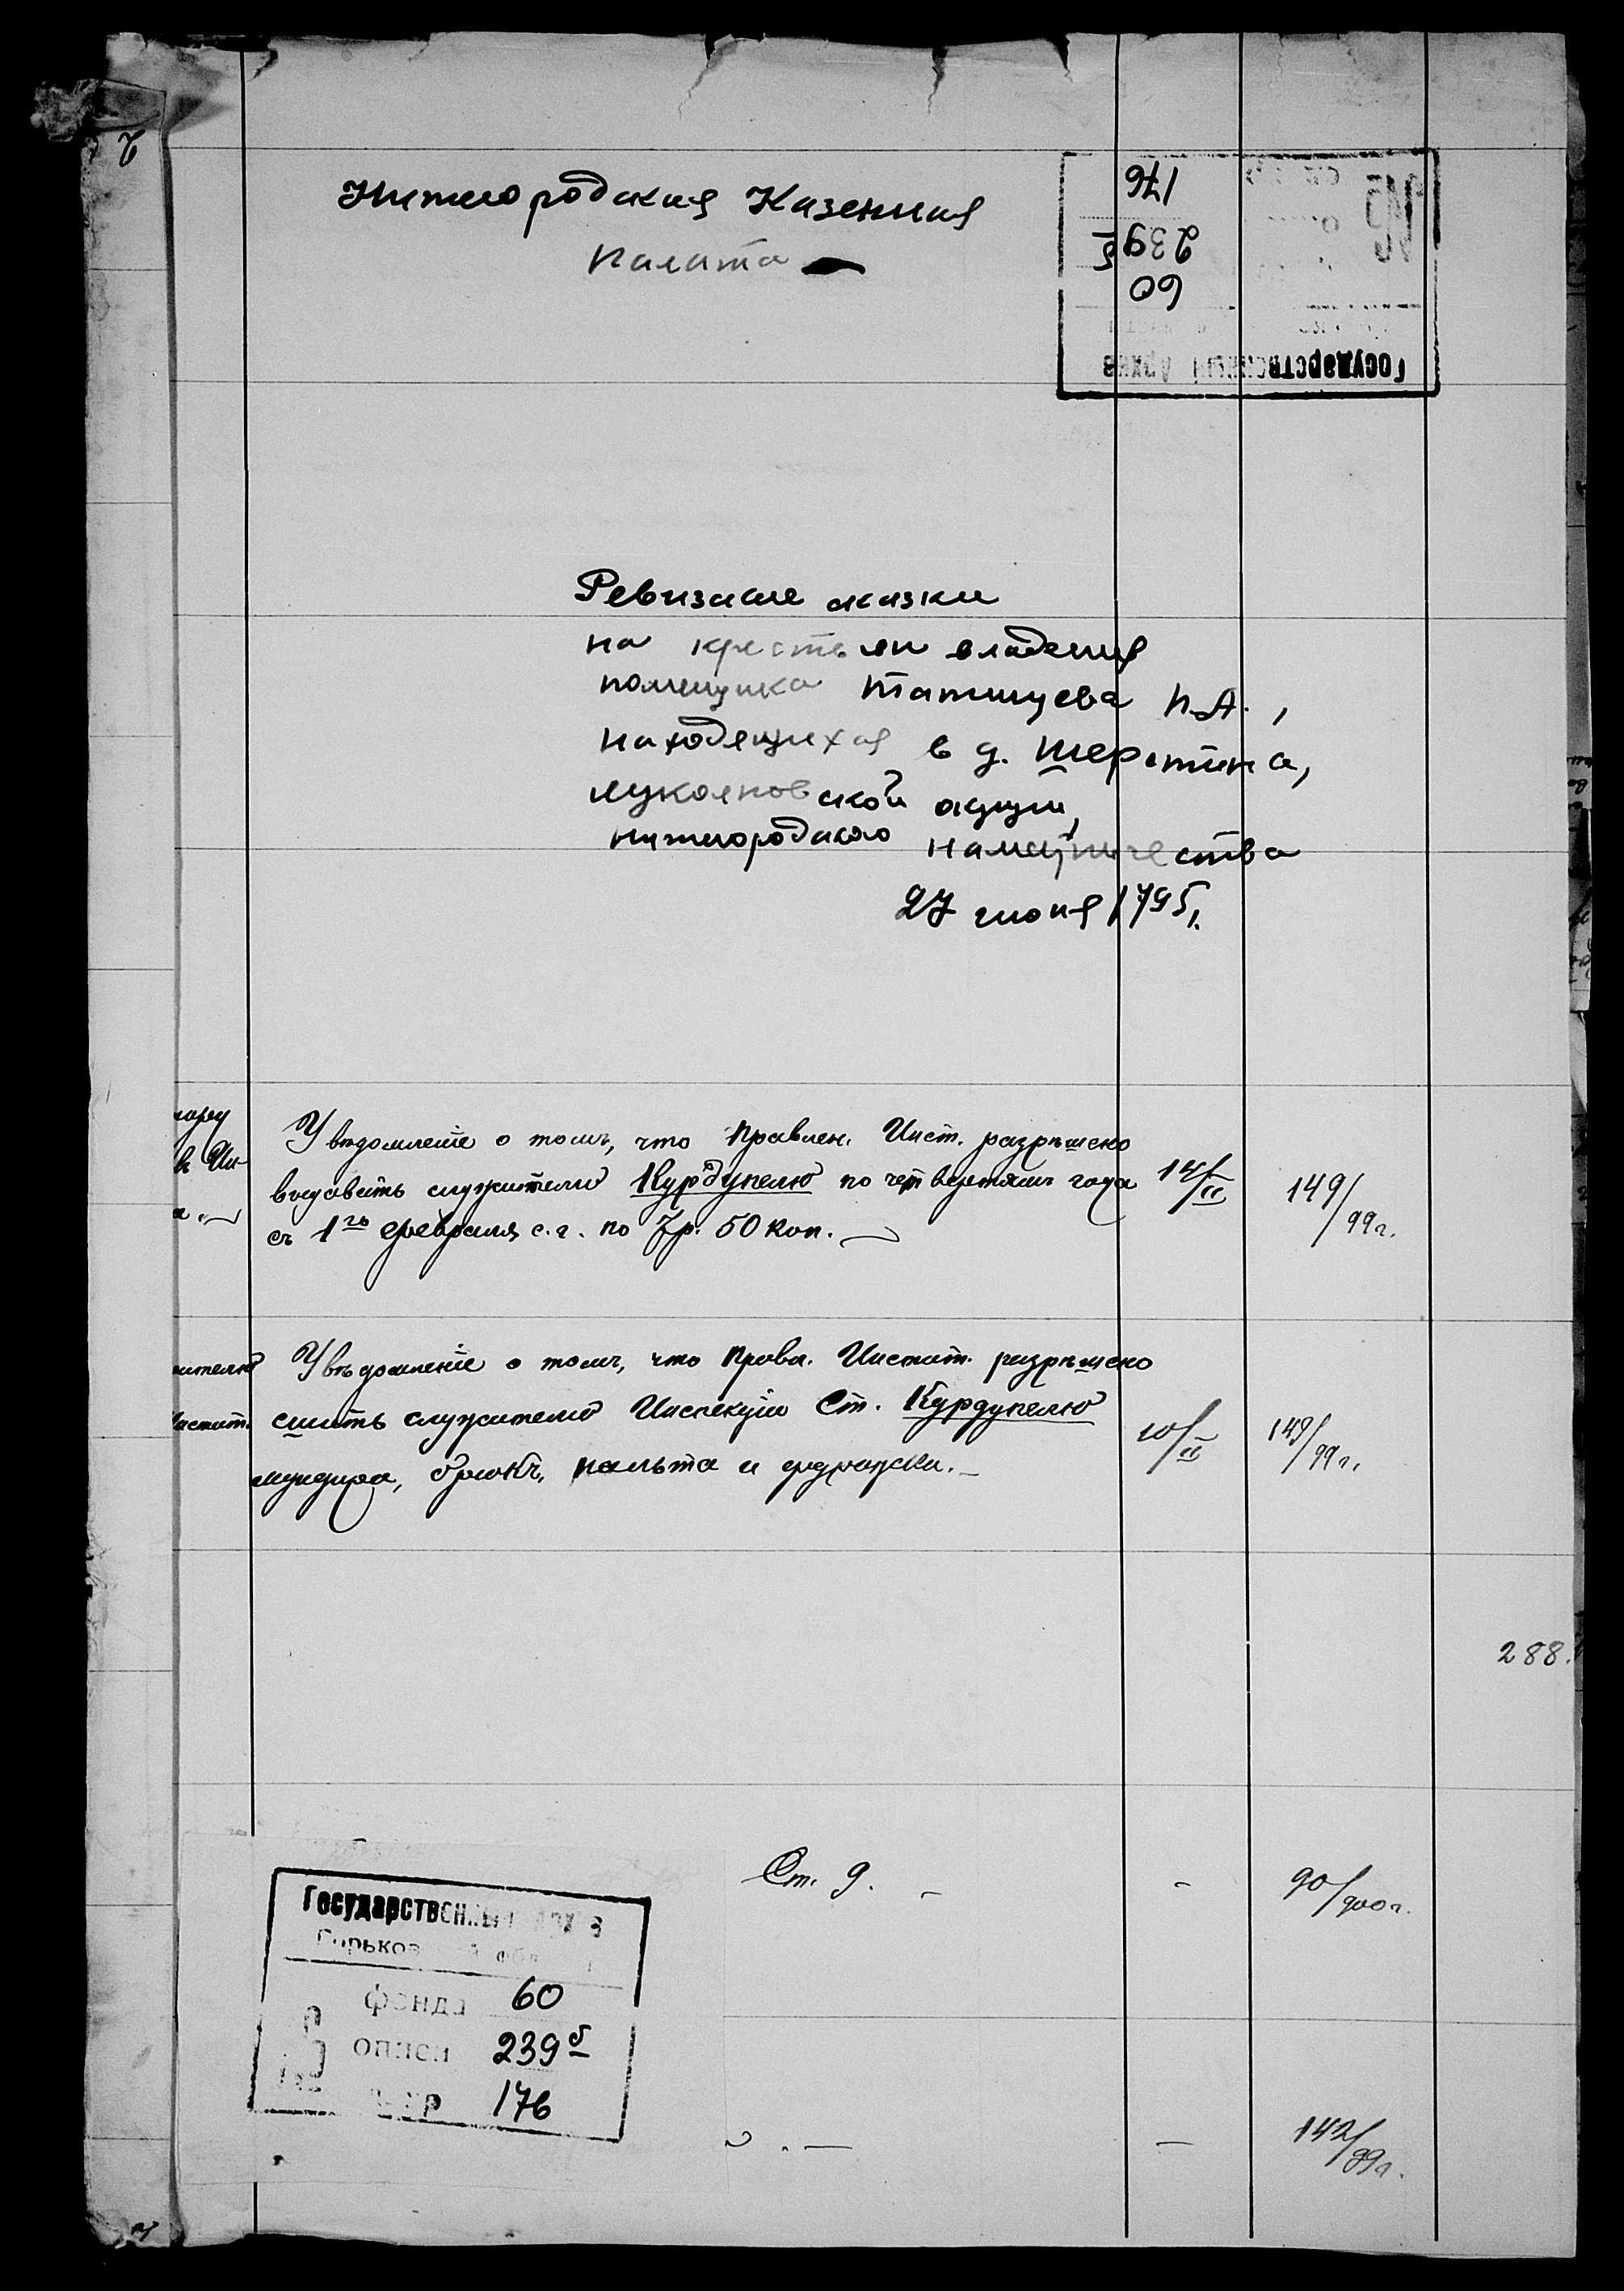 Нижегородская Казенная
палата
176
239б
60
Государственный Архив
Ревизские сказки
на крестьян владения
помещика Татищева П.А.,
находящихся в д. Шерстина,
Лукояновской округи,
Нижегородского наместничества
27 июня 1795г.
Увѣдомленіе о томъ, что Правлен. Инст. разрѣшено
выдавать служителю Курдупелю по четвертямъ года
съ 1го февраля с.г. по 7р. 50 коп.
14/II
149/99г.
Увѣдомленіе о томъ, что Правл. Инстит. разрѣшено
сшить служителю Инспекціи Ст. Курдупелю
мундира, брюкъ, пальта и фуражки.
10/II
149/99г.
288.
Ст. 9. -
-
90/900г.
Государственный Архив
Горьковской обл
фонда 60
описи 239б
176
142/99г.